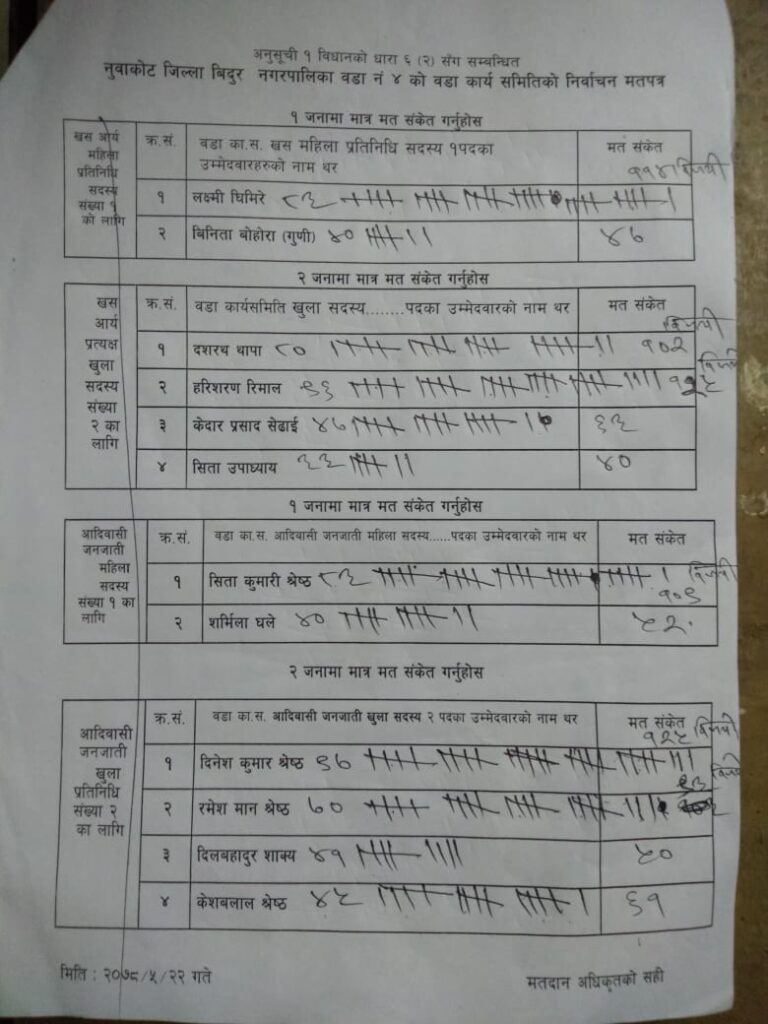 अनुसूची १ विधानको धारा ६ (२) संग सम्बन्धित
नुवाकोट जिल्ला बिदुर नगरपालिका वडा नं ४ को वडा कार्य समितिको निर्वाचन मतपत्र
१ जनामा मात्र मत संकेत गर्नुहोस
खस आर्य महिला प्रतिनिधि सदस्य संख्या १ को लागि
क्र.सं. वडा का.स. खस महिला प्रतिनिधि सदस्य १पदका उम्मेदवारहरुको नाम थर मत संकेत
१ लक्ष्मी घिमिरे ८३ ११४ विजयी
२ बिनिता बोहोरा (गुणी) ४० ४७
२ जनामा मात्र मत संकेत गर्नुहोस
खस आर्य प्रत्यक्ष खुला सदस्य संख्या २ का लागि
क्र.सं. वडा कार्यसमिति खुला सदस्य........पदका उम्मेदवारको नाम थर मत संकेत
१ दशरथ थापा ८० १०२ विजयी
२ हरिशरण रिमाल ९६ विजयी
३ केदार प्रसाद सेढाई ४७ ६३
४ सिता उपाध्याय ३३ ४०
१ जनामा मात्र मत संकेत गर्नुहोस
आदिवासी जनजाती महिला सदस्य संख्या १ का लागि
क्र.सं. वडा का.स. आदिवासी जनजाती महिला सदस्य......पदका उम्मेदवारको नाम थर मत संकेत
१ सिता कुमारी श्रेष्ठ ८३ १०९ विजयी
२ शर्मिला घले ४० ५२
२ जनामा मात्र मत संकेत गर्नुहोस
आदिवासी जनजाती खुला प्रतिनिधि संख्या २ का लागि
क्र.सं. वडा का.स. आदिवासी जनजाती खुला सदस्य २ पदका उम्मेदवारको नाम थर मत संकेत
१ दिनेश कुमार श्रेष्ठ ९७ १२५ विजयी
२ रमेश मान श्रेष्ठ ७० ९३ विजयी
३ दिलबहादुर शाक्य ४१ ५०
४ केशबलाल श्रेष्ठ ४५ ६१
मिति : २०७८/५/२२ गते
मतदान अधिकृतको सही